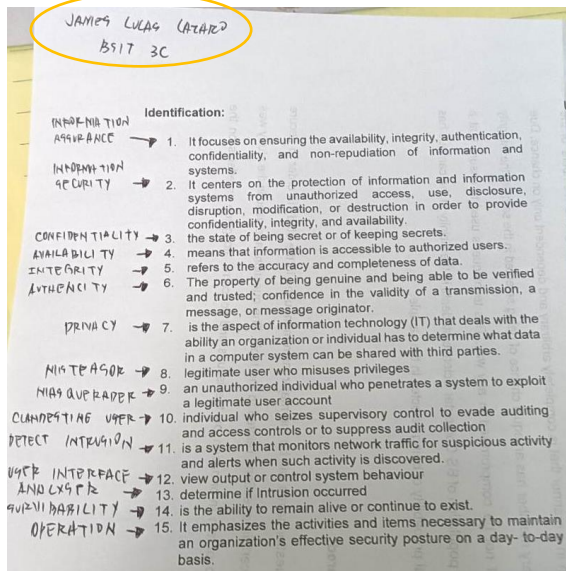 JAMES LUCAS LAZARO
BSIT 3C
Identification:
INFORMATION
ASSURANCE → 1. It focuses on ensuring the availability, integrity, authentication,
confidentiality, and non-repudiation of information and
systems.
INFORMATION
SECURITY → 2. It centers on the protection of information and information
systems from unauthorized access, use, disclosure,
disruption, modification, or destruction in order to provide
confidentiality, integrity, and availability.
CONFIDENTIALITY → 3. the state of being secret or of keeping secrets.
AVAILABILITY → 4. means that information is accessible to authorized users.
INTEGRITY → 5. refers to the accuracy and completeness of data.
AUTHENCITY → 6. The property of being genuine and being able to be verified
and trusted; confidence in the validity of a transmission, a
message, or message originator.
PRIVACY → 7. is the aspect of information technology (IT) that deals with the
ability an organization or individual has to determine what data
in a computer system can be shared with third parties.
MISTEASOR → 8. legitimate user who misuses privileges
MASQUERADER → 9. an unauthorized individual who penetrates a system to exploit
a legitimate user account
CLANDESTINE USER → 10. individual who seizes supervisory control to evade auditing
and access controls or to suppress audit collection
DETECT INTRUSION → 11. is a system that monitors network traffic for suspicious activity
and alerts when such activity is discovered.
USER INTERFACE → 12. view output or control system behaviour
ANALYSER → 13. determine if Intrusion occurred
SURVIBABILITY → 14. is the ability to remain alive or continue to exist.
OPERATION → 15. It emphasizes the activities and items necessary to maintain
an organization's effective security posture on a day- to-day
basis.